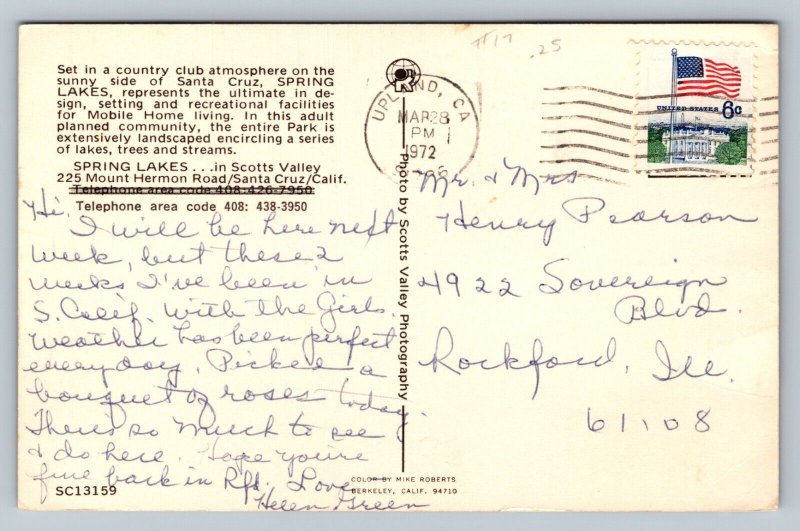 #17 .25
Set in a country club atmosphere on the
sunny side of Santa Cruz, SPRING
LAKES, represents the ultimate in de-
sign, setting and recreational facilities
for Mobile Home living. In this adult
planned community, the entire Park is
extensively landscaped encircling a series
of lakes, trees and streams.
SPRING LAKES . . . in Scotts Valley
225 Mount Hermon Road/Santa Cruz/Calif.
Telephone area code 408-426-7950
Telephone area code 408: 438-3950
Hi,
I will be here next
week, but these 2
weeks I've been in
S. Calif. with the Girls.
Weather has been perfect
everyday. Picked a
bouquet of roses today.
There's so much to see
& do here. Hope you're
fine back in Rfd. Love
Helen Green
SC13159
Photo by Scotts Valley Photography
COLOR BY MIKE ROBERTS
BERKELEY, CALIF. 94710
UPLAND, CA
MAR 28
PM
1972
UNITED STATES 6c
Mr. & Mrs
Henry Pearson
4922 Sovereign
Blvd.
Rockford, Ill.
61108